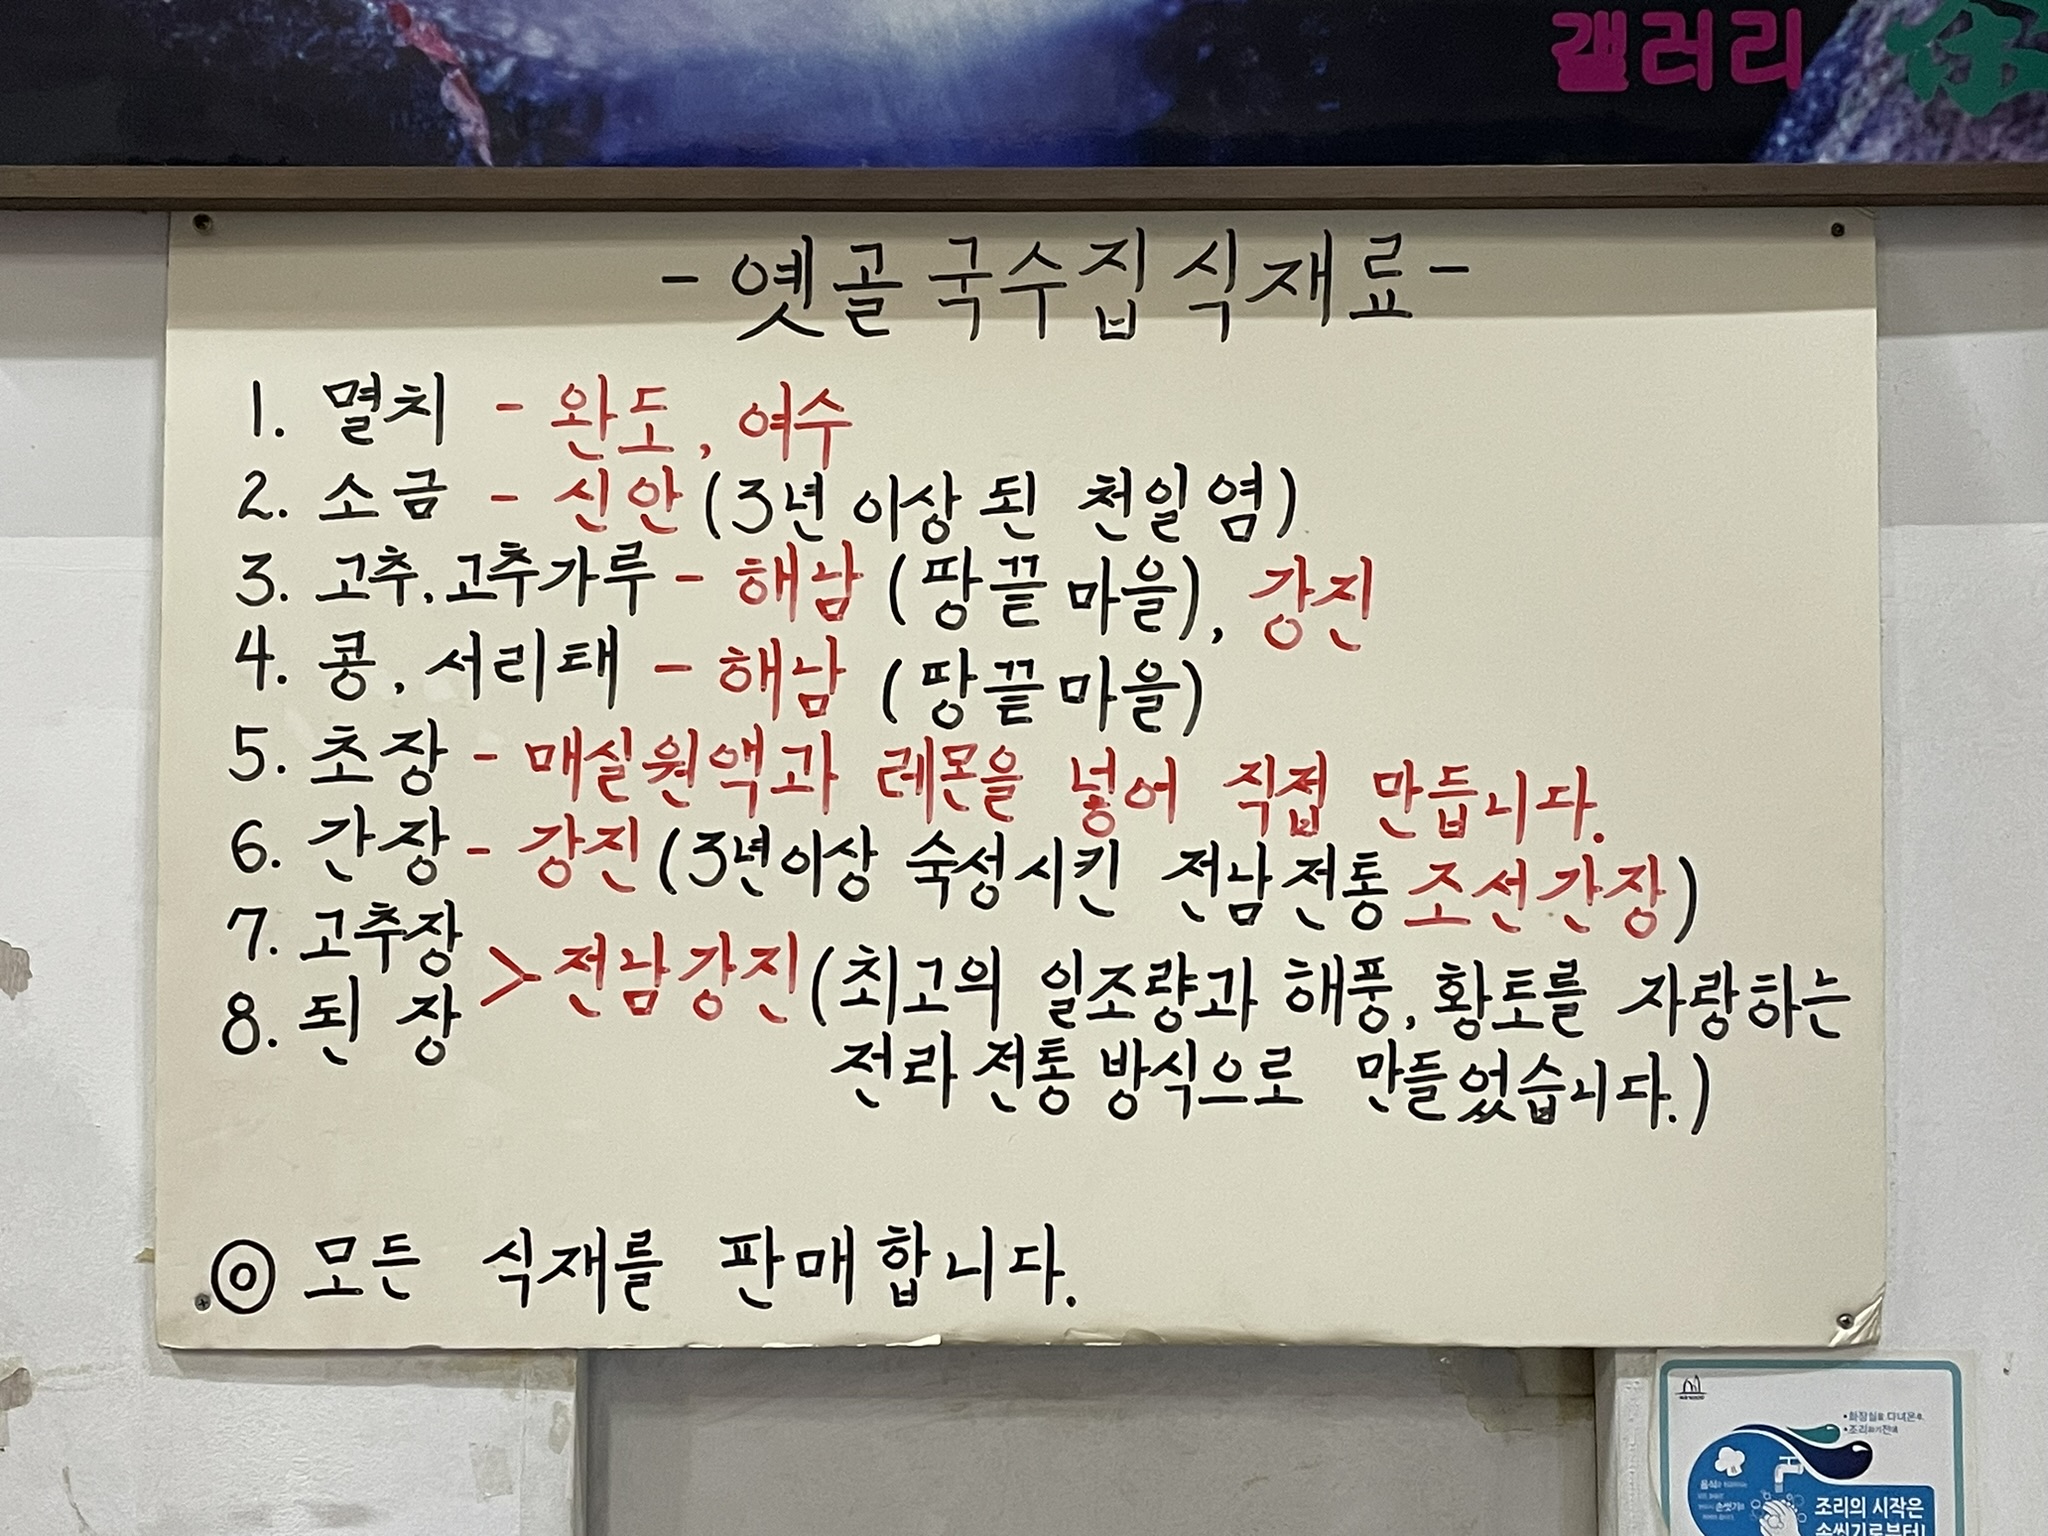 갤러리
- 옛골 국수집 식재료 -
1. 멸치 - 완도, 여수
2. 소금 - 신안 (3년 이상 된 천일염)
3. 고추, 고추가루 - 해남 (땅끝 마을), 강진
4. 콩, 서리태 - 해남 (땅끝마을)
5. 초장 - 매실원액과 레몬을 넣어 직접 만듭니다.
6. 간장 - 강진 (3년이상 숙성시킨 전남전통 조선간장)
7. 고추장
8. 된장
> 전남강진 (최고의 일조량과 해풍, 황토를 자랑하는
전라 전통 방식으로 만들었습니다.)
◎ 모든 식재를 판매합니다.
•화장실을 다녀온후,
•조리하기전에
조리의 시작은
손씻기로부터!